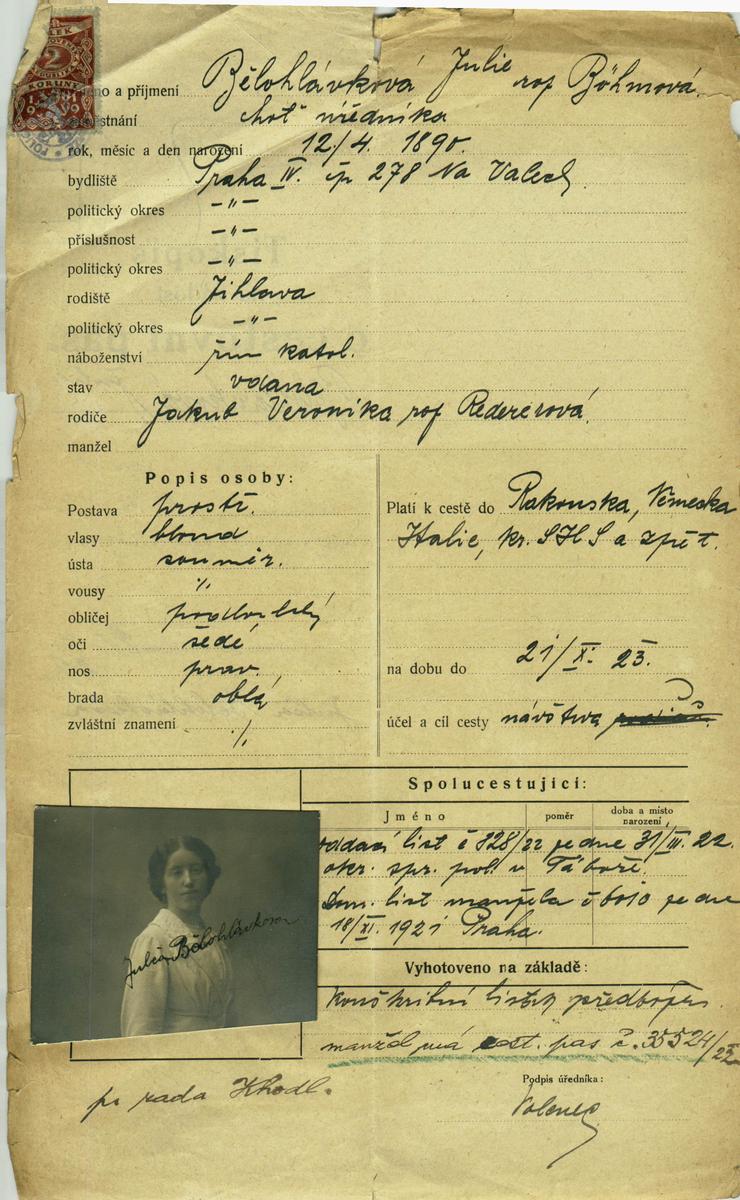 2
KORUNY
jméno a příjmení Bělohlávková Julie roz Böhmová.
zaměstnání choť úředníka
rok, měsíc a den narození 12./4. 1890.
bydliště Praha IV. čp 278 Na Valech
politický okres —"—
příslušnost —"—
politický okres —"—
rodiště Jihlava
politický okres —"—
náboženství řím katol.
stav vdana
rodiče Jakub Veronika roz Redererová.
manžel
Popis osoby:
Postava prostř.
vlasy blond
ústa souměr.
vousy ./.
obličej podlouhlý
oči šedé
nos prav.
brada oblá
zvláštní znamení ./.
Platí k cestě do Rakouska, Německa
Italie, kr. SHS a zpět.
na dobu do 21/XI. 23.
účel a cíl cesty návštěva
Spolucestující:
Jméno poměr doba a místo narození
oddací list č 328/22 ze dne 31/III. 22.
okr. spr. pol. v Táboře.
Dom. list manžela č 6010 ze dne
18/XI. 1921 Praha.
Vyhotoveno na základě:
Konškribční listky předběžn
manžel má cest. pas č. 35524/22
Podpis úředníka:
Julia Bělohlávková